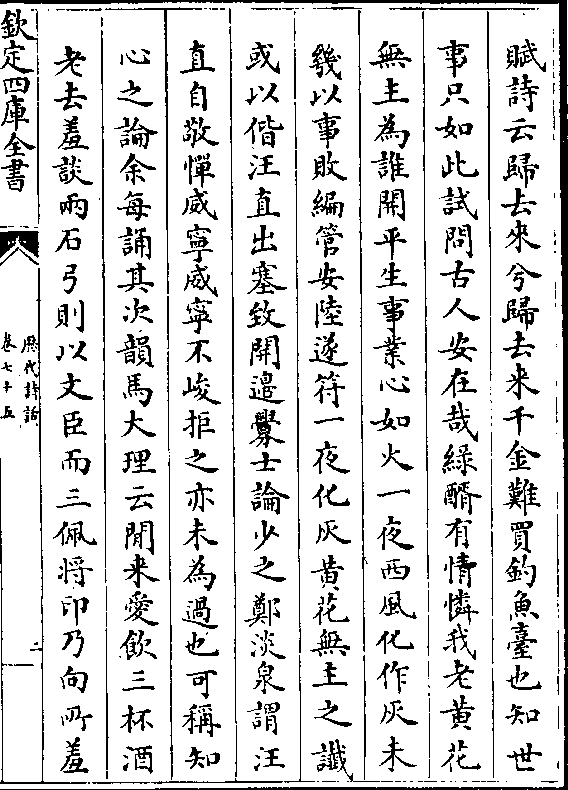 賦詩云歸去來兮歸去來千金難買釣魚臺也知世
事只如此試問古人安在哉綠醑有情憐我老黃花
無主為誰開平生事業心如火一夜西風化作灰未
幾以事敗編管安陸遂符一夜化灰黃花無主之讖
或以偕汪直出塞致開邉釁士論少之鄭淡泉謂汪
直自敬憚威寧威寧不峻拒之亦未為過也可稱知
心之論余每誦其次韻馬大理云閒来愛飲三杯酒
老去羞談兩石弓則以文臣而三佩将印乃向所羞
欽定四庫全書
歴代詩話
卷七十五
二